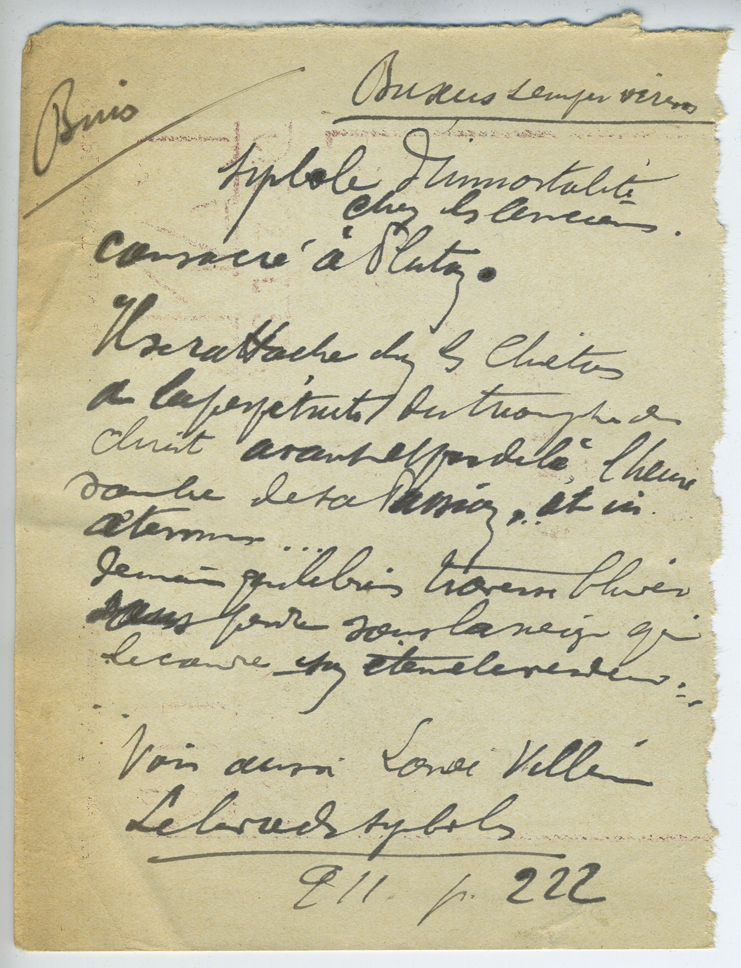 Buis
Buxus sempervirens
Symbole d'immortalité
chez les anciens.
consacré à Pluton.
Il se rattache chez les Chrétiens
à la perpétuité du triomphe du
christ avant et par delà, l'heure
sombre de sa Passion... et in
æternum...
demême que le buis traverse l'hiver
sans perdre sous la neige qui
le couvre son éternelle verdeur...
Voir aussi
Le livre des symboles
p. 222